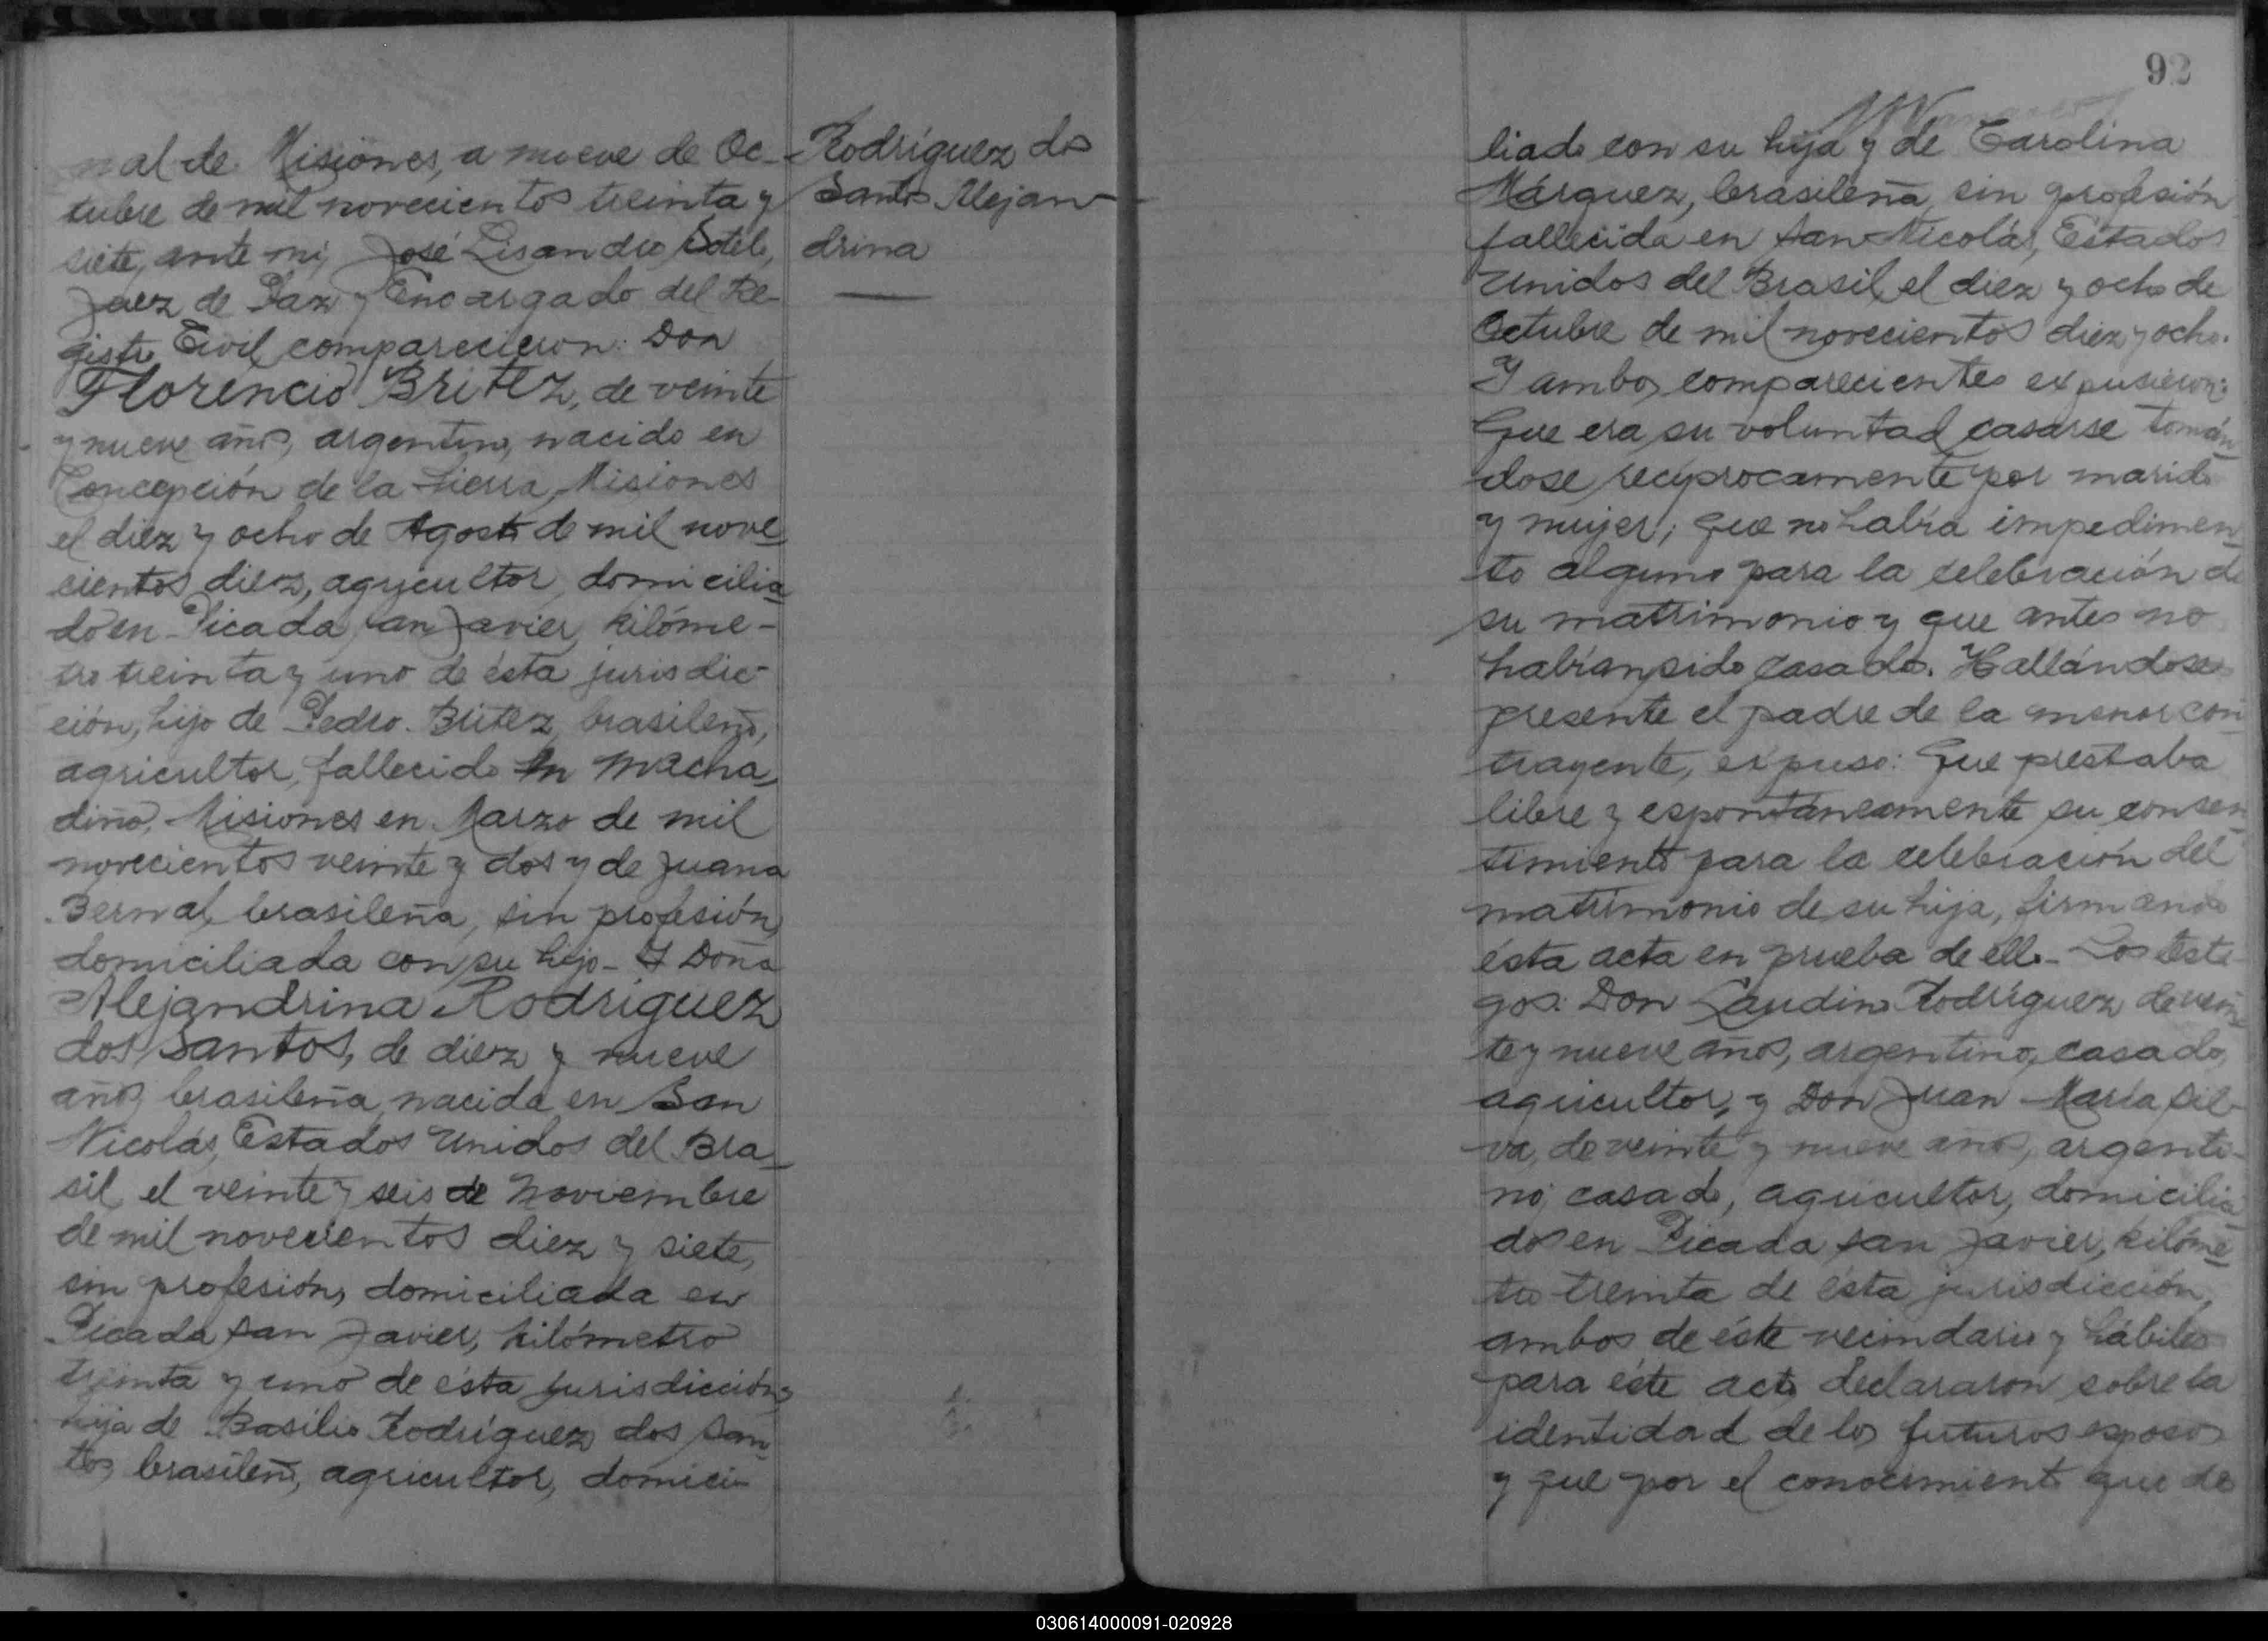 nal de Misiones, a nueve de Oc-
tubre de mil novecientos treinta y
siete, ante mi, José Lisandro Sotelo,
Juez de Paz y Encargado del Re-
gistro Civil comparecieron: Don
Florencio Britez, de veinte
y nueve años, argentino, nacido en
Concepción de la Sierra, Misiones
el diez y ocho de Agosto de mil nove-
cientos diez, agricultor, domicilia-
do en Picada San Javier, kilóme-
tro treinta y uno de ésta jurisdic-
ción, hijo de Pedro Britez, brasileño,
agricultor, fallecido en Macha-
diño, Misiones en Marzo de mil
novecientos veinte y dos y de Juana
Bernal, brasileña, sin profesión,
domiciliada con su hijo- Y Doña
Alejandrina Rodríguez
dos Santos, de diez y nueve
años, brasileña, nacida en San
Nicolás, Estados Unidos del Bra-
sil, el veinte y seis de Noviembre
de mil novecientos diez y siete,
sin profesión, domiciliada en
Picada San Javier, kilómetro
treinta y uno de ésta jurisdicción,
hija de Basilio Rodríguez dos San-
tos, brasileño, agricultor, domici-
Rodríguez dos
Santos Alejan-
drina
92
liado con su hija y de Carolina
Márquez, brasileña, sin profesión,
fallecida en San Nicolás, Estados
Unidos del Brasil, el diez y ocho de
Octubre de mil novecientos diez y ocho.
Y ambos comparecientes expusieron:
Que era su voluntad casarse tomán-
dose recíprocamente por marido
y mujer; que no había impedimen-
to alguno para la celebración de
su matrimonio y que antes no
habían sido casados. Hallándose
presente el padre de la menor con-
trayente, expuso: Que prestaba
libre y espontáneamente su consen-
timiento para la celebración del
matrimonio de su hija, firmando
ésta acta en prueba de ello- Los testi-
gos: Don Laudino Rodríguez de vein-
te y nueve años, argentino, casado,
agricultor, y Don Juan María Sil-
va, de veinte y nueve años, argenti-
no, casado, agricultor, domicilia-
dos en Picada San Javier, kilóme-
tro treinta de ésta jurisdicción,
ambos de éste vecindario y hábiles
para éste acto, declararon sobre la
identidad de los futuros esposos
y que por el conocimiento que de
030614000091-020928